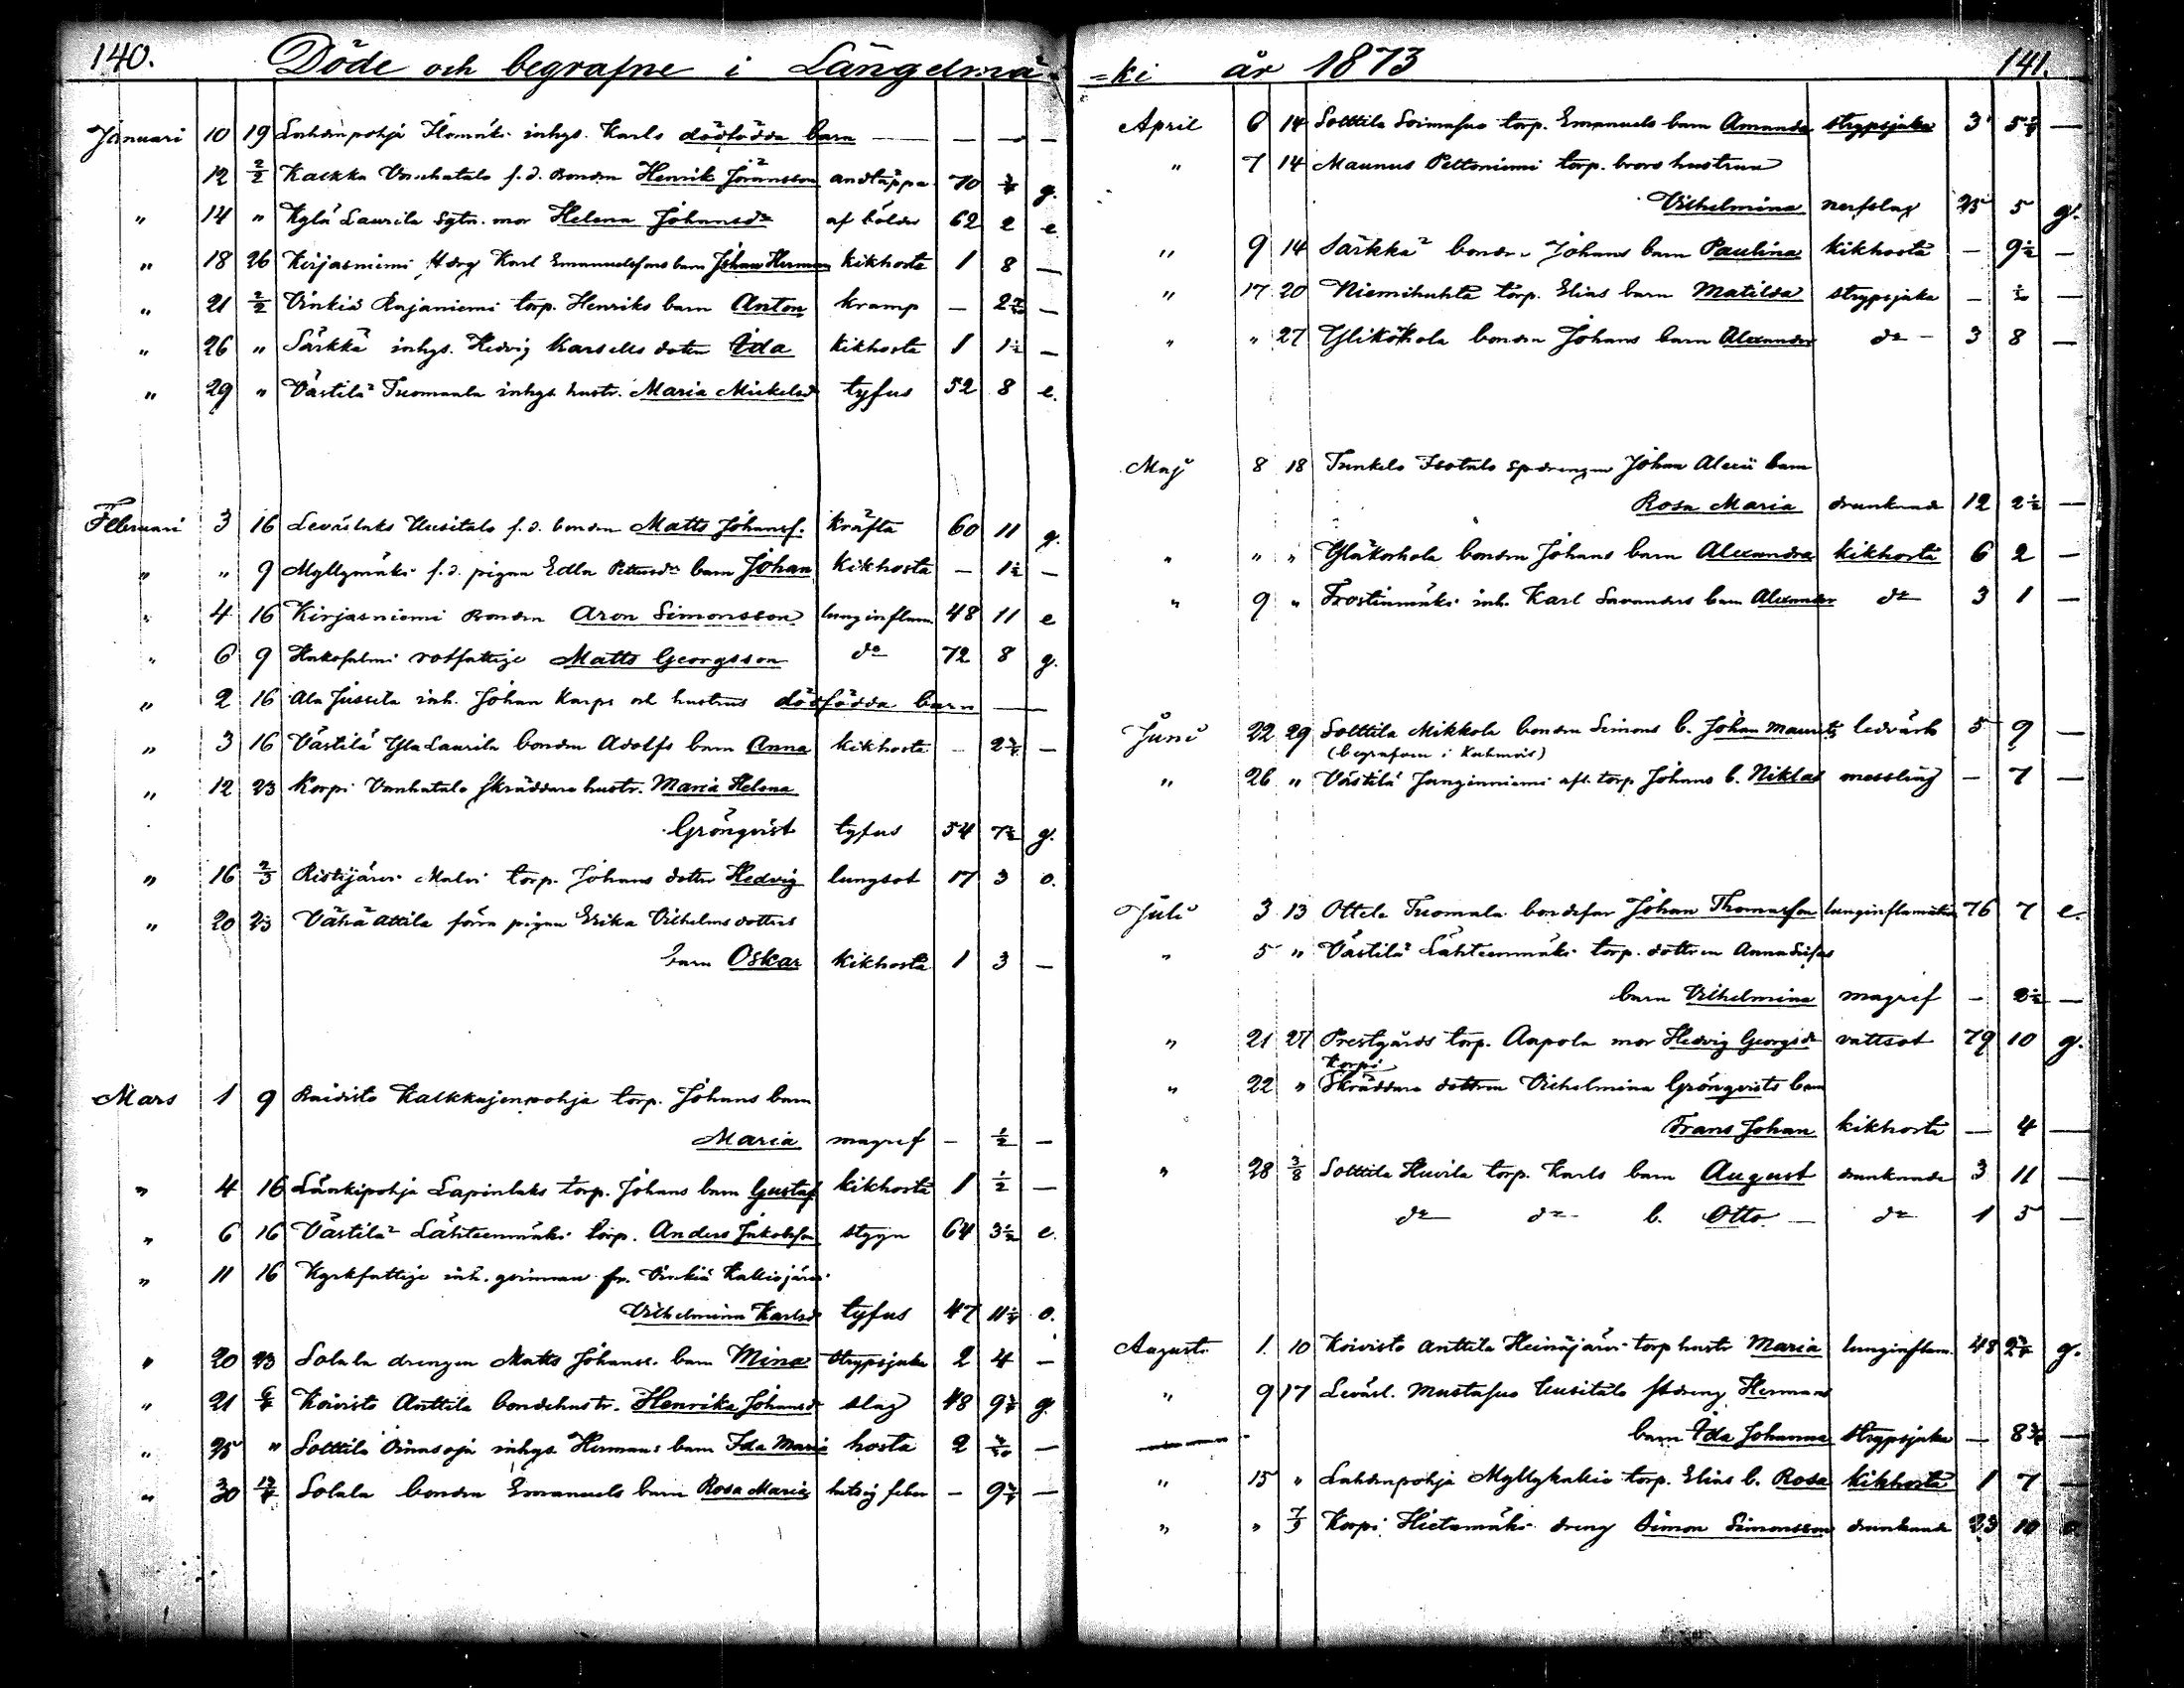 140.
Döde och begrafne i Längelmä=
Januari 10 19 Lahdenpohja inhys. Karls dödfödda barn — — — —
12 2/2 Kalkka f. d. Bonden Henrik Göransson andtäppa 70 g.
" 14 " Kylä Laurila Sytn. mor Helena Johansdr af bölder 62 2 e
" 18 26 Kirjasniemi Karl Emanuelssons barn Johan Herman kikhosta 1 8 —
" 21 2/2 Vinkiä Rajaniemi torp. Henriks barn Anton kramp — —
" 26 " Särkkä inhys. Hedvig Karsells dotter Ida kikhosta 1 1½ —
" 29 " Västilä Tuomaala inhys. hustr. Maria Mickelsd tyfus 52 8 e.
Februari 3 16 Leväslaks Uusitalo f. d. bonden Matts Johanss. kräfta 60 11 g.
" " 9 Myllymäki f. d. pigan Edla Pettersdr barn Johan kikhosta — 1½ —
" 4 16 Kirjasniemi Bonden Aron Simonsson lunginflam. 48 11 e
" 6 9 Hakosalmi rotfattige Matts Georgsson do 72 8 g.
" 2 16 Ala Jussila inh. Johan Karps och hustrus dödfödda barn —
" 3 16 Västilä Ylä Laurila bonden Adolfs barn Anna kikhosta — —
" 12 23 Korpi Vanhatalo skräddare hustr. Maria Helena
Grönqvist tyfus 54 7½ g.
" 16 2/3 Ristijärvi Malvi torp. Johans dotter Hedvig lungsot 17 3 o.
" 20 23 Vähä Attila förra pigan Erika Vilhelms dotters
barn Oskar kikhosta 1 3 —
Mars 1 9 Raidisto Kalkkajenpohja torp. Johans barn
Maria magref — ½ —
" 4 16 Länkipohja Lapinlaks torp. Johans barn Gustaf kikhosta 1 ½ —
" 6 16 Västilä Lähteenmäki torp. Anders Jakobsson styng 64 3½ e.
" 11 16 Kyrkfattige inh. qvinnan fr. Vinkiä Kalliojärvi
Vilhelmina Karlsd tyfus 47 o.
" 20 23 Solala drengen Matts Johanss. barn Mina strypsjuka 2 4 —
" 21 6/4 Koivisto Anttila bondehustr. Henrika Johansd slag 48 g.
" 25 " Solttila Oinasoja inhys. Hermans barn Ida Maria hosta 2 —
" 30 Solala bonden Emanuels barn Rosa Maria hetsig feber — —
=ki år 1873 141.
April 6 14 Solttila Soimasuo torp. Emanuels barn Amanda strypsjuka 3 —
" 7 14 Maunus Peltoniemi torp. brors hustrun
Vilhelmina nerfslag 25 5 g.
" 9 14 Särkkä bonden Johans barn Paulina kikhosta — 9½ —
" 17 20 Niemihuhta torp. Elias barn Matilda strypsjuka — —
" " 27 Ylikökola bonden Johans barn Alexander do — 3 8 —
Maj 8 18 Tunkelo Isotalo Johan barn
Rosa Maria drunknade 12 2½ —
" " " bonden Johans barn Alexandra kikhosta 6 2 —
" 9 " inh. Karl Savanders barn Alexander do 3 1 —
Juni 22 29 Solttila Mikkola bonden Simons b. Johan Maurits ledvärk 5 9 —
(begrafven i Kuhmois)
" 26 " Västilä Junginniemi afl. torp Johans b. Niklas messling — 7 —
Juli 3 13 Attila Tuomala bondefar Johan Thomasson lunginflamation 76 7 e.
" 5 " Västilä Lähteenmäki torp. dottren Anna
barn Vilhelmina magref — —
" 21 27 Prestgårds torp. Aapola mor Hedvig Georgsdr vattsot 79 10 g.
Korpi
" 22 " Skräddare dottren Vilhelmina Grönqvists barn
Frans Johan kikhosta — 4 —
" 28 3/8 Solttila Huvila torp. Karls barn August drunknade 3 11 —
do do b. Otto — do 1 5 —
August. 1 10 Koivisto Anttila Heinäjärvi torp hustr Maria lunginflam. 48 g.
" 9 17 Leväsl. Mustasuo Uusitalo Hermans
barn Ida Johanna strypsjuka — 8¾ —
" 15 " Lahdenpohja Myllykallio torp. Elias b. Rosa kikhosta 1 7 —
" " 7/9 Korpi Hietamäki dreng Simon Simonsson drunknade 23 10